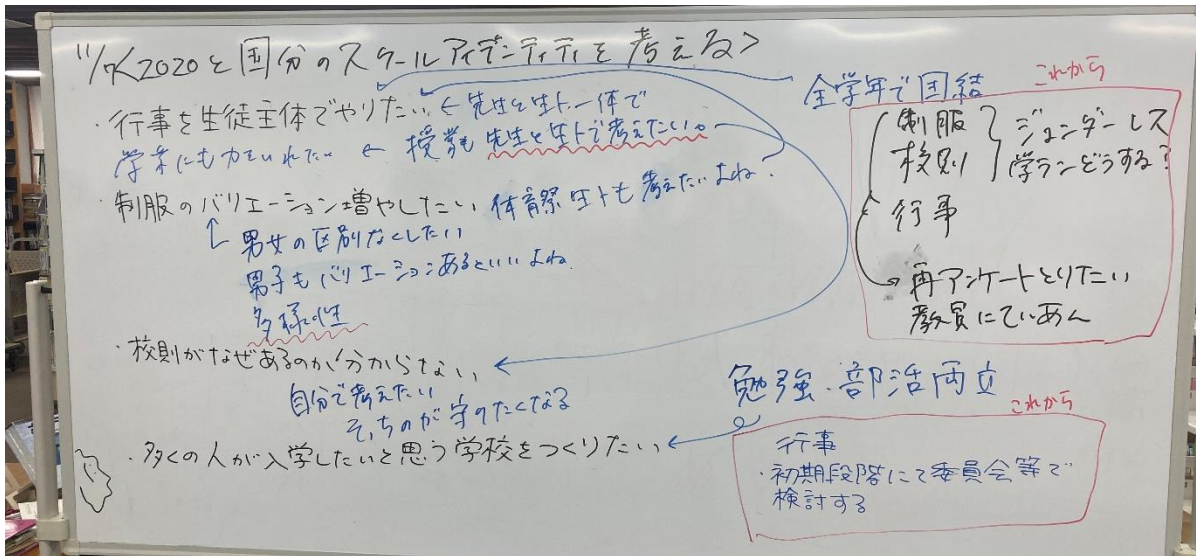 11/7K2020と国分のスクールアイデンティティを考える>
・行事を生徒主体でやりたい ← 先生と生ト一体で
学業にも力をいれたい ← 授業も先生と生トで考えたい。
・制服のバリエーション増やしたい 体育祭生トも考えたいよね。
男女の区別なくしたい
男子もバリエーションあるといいよね
多様性
・校則がなぜあるのか分からない
自分で考えたい
そっちのが守りたくなる
・多くの人が入学したいと思う学校をつくりたい
全学年で団結
これから
制服
校則
ジェンダーレス
学ランどうする?
行事
再アンケートとりたい
教員にていあん
勉強・部活両立
これから
行事
・初期段階にて委員会等で
検討する